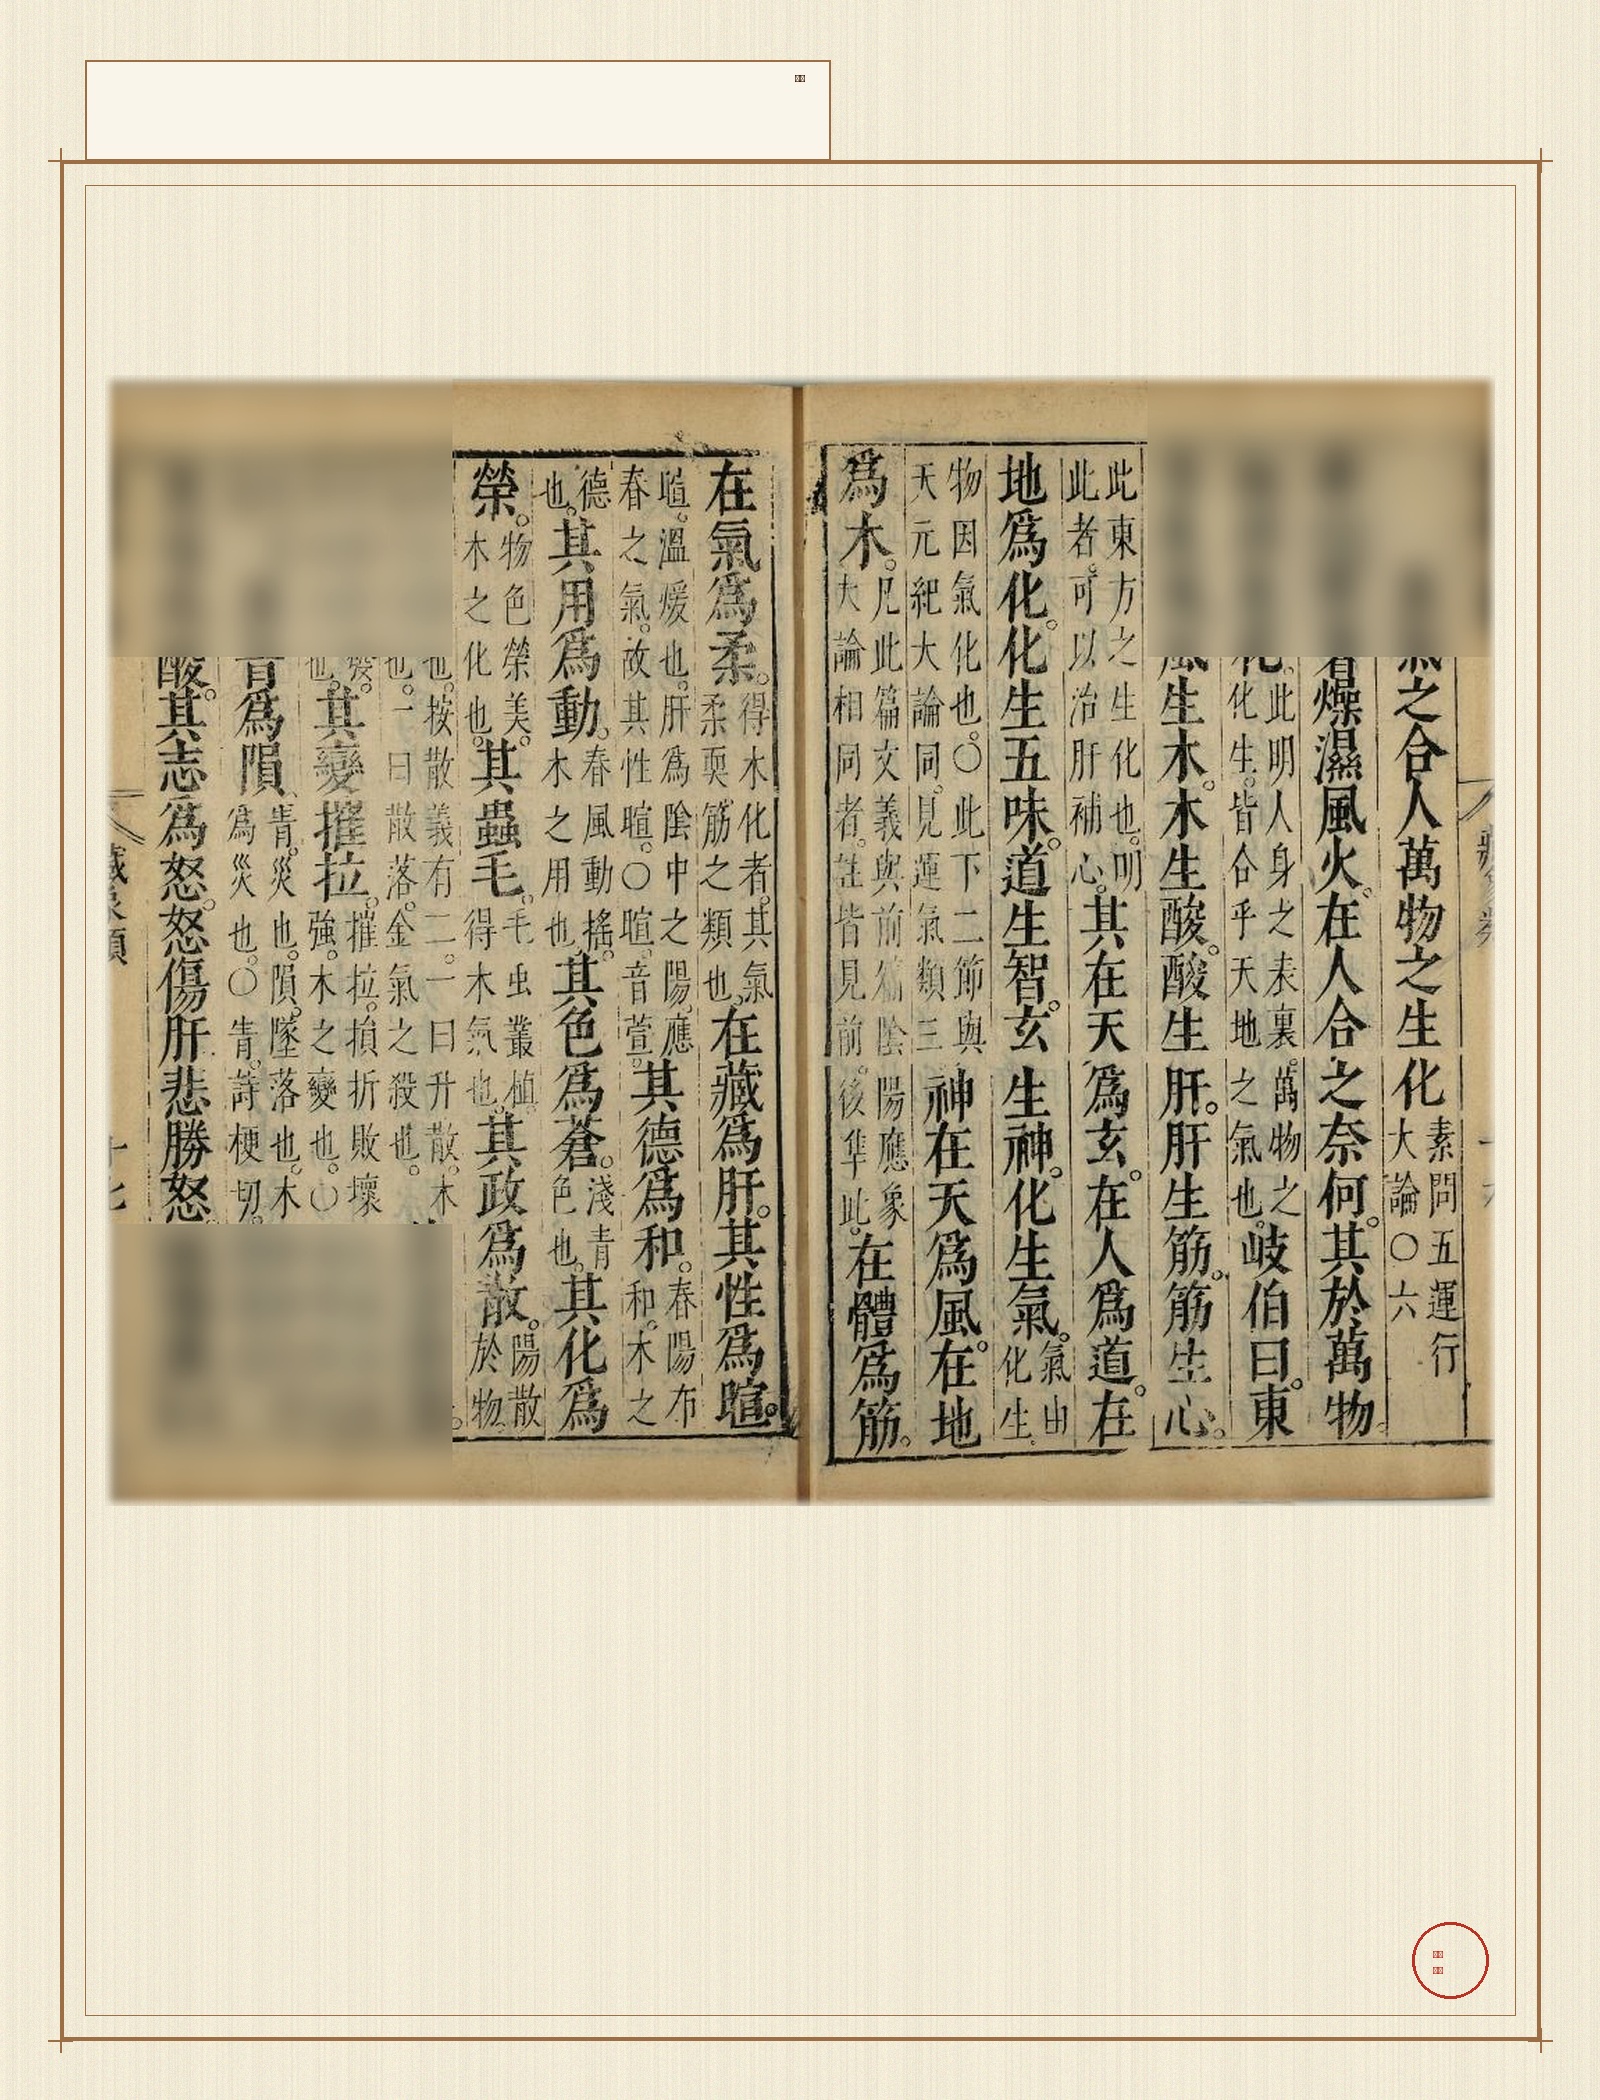 之合人萬物之生化素問五運行大論〇六
燥濕風火。在人合之奈何。其於萬物
化。此明人身之表裏。萬物之化生。皆合乎天地之氣也。岐伯曰。東
風生木。木生酸。酸生肝。肝生筋。筋生心。
此東方之生化也。明此者。可以治肝補心。其在天爲玄。在人爲道。在
地爲化。化生五味。道生智。玄生神。化生氣。氣由化生。
物因氣化也。〇此下二節與天元紀大論同。見運氣類三神在天爲風。在地
爲木。凡此篇文義與前篇陰陽應象大論相同者。註皆見前。後準此。在體爲筋。
在氣爲柔。得木化者。其氣柔耎。筋之類也。在藏爲肝。其性爲暄。
暄。溫煖也。肝爲陰中之陽。應春之氣。故其性暄。〇暄。音萱。其德爲和。春陽布和。木之
德也。其用爲動。春風動搖。木之用也。其色爲蒼。淺青色也。其化爲
榮。物色榮美。木之化也。其蟲毛。毛虫叢植。得木氣也。其政爲散。陽散於物。
也。按散義有二。一曰升散。木也。一曰散落。金氣之殺也。
發。也。其變摧拉。摧拉。損折敗壞強。木之變也。〇
眚爲隕。眚。災也。隕。墜落也。木爲災也。〇眚。詩梗切。
酸。其志爲怒。怒傷肝。悲勝怒。